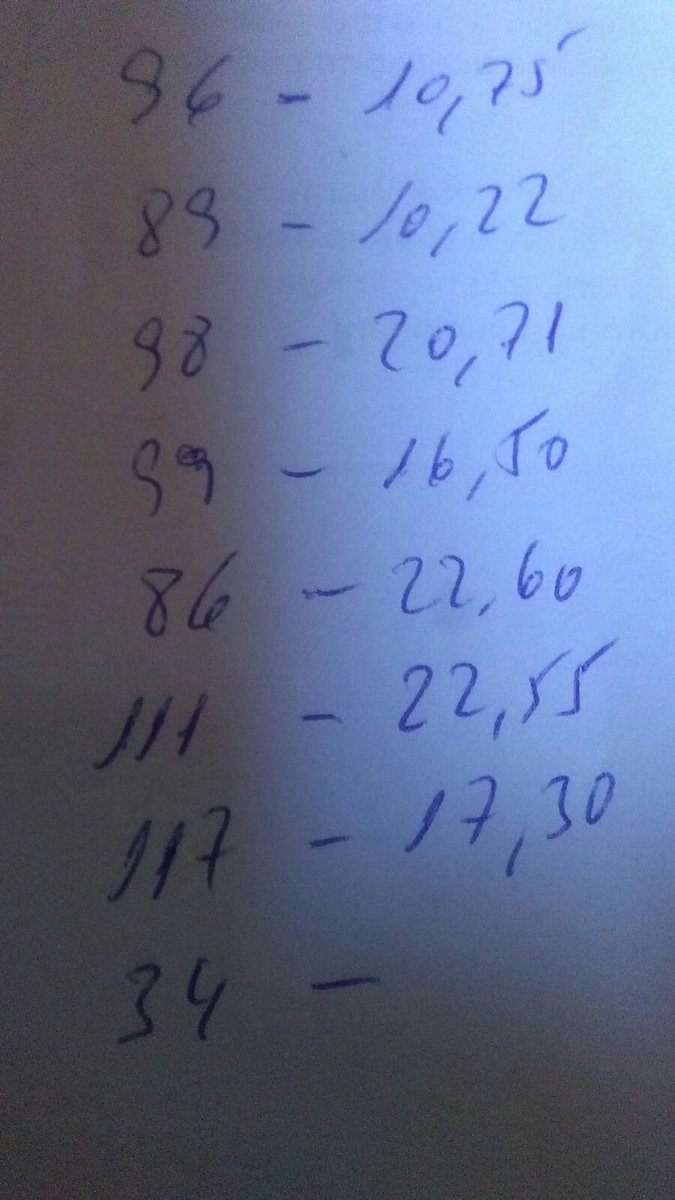 96 - 10,75
89 - 10,22
98 - 20,71
99 - 16,50
86 - 22,60
111 - 22,55
117 - 17,30
34 -